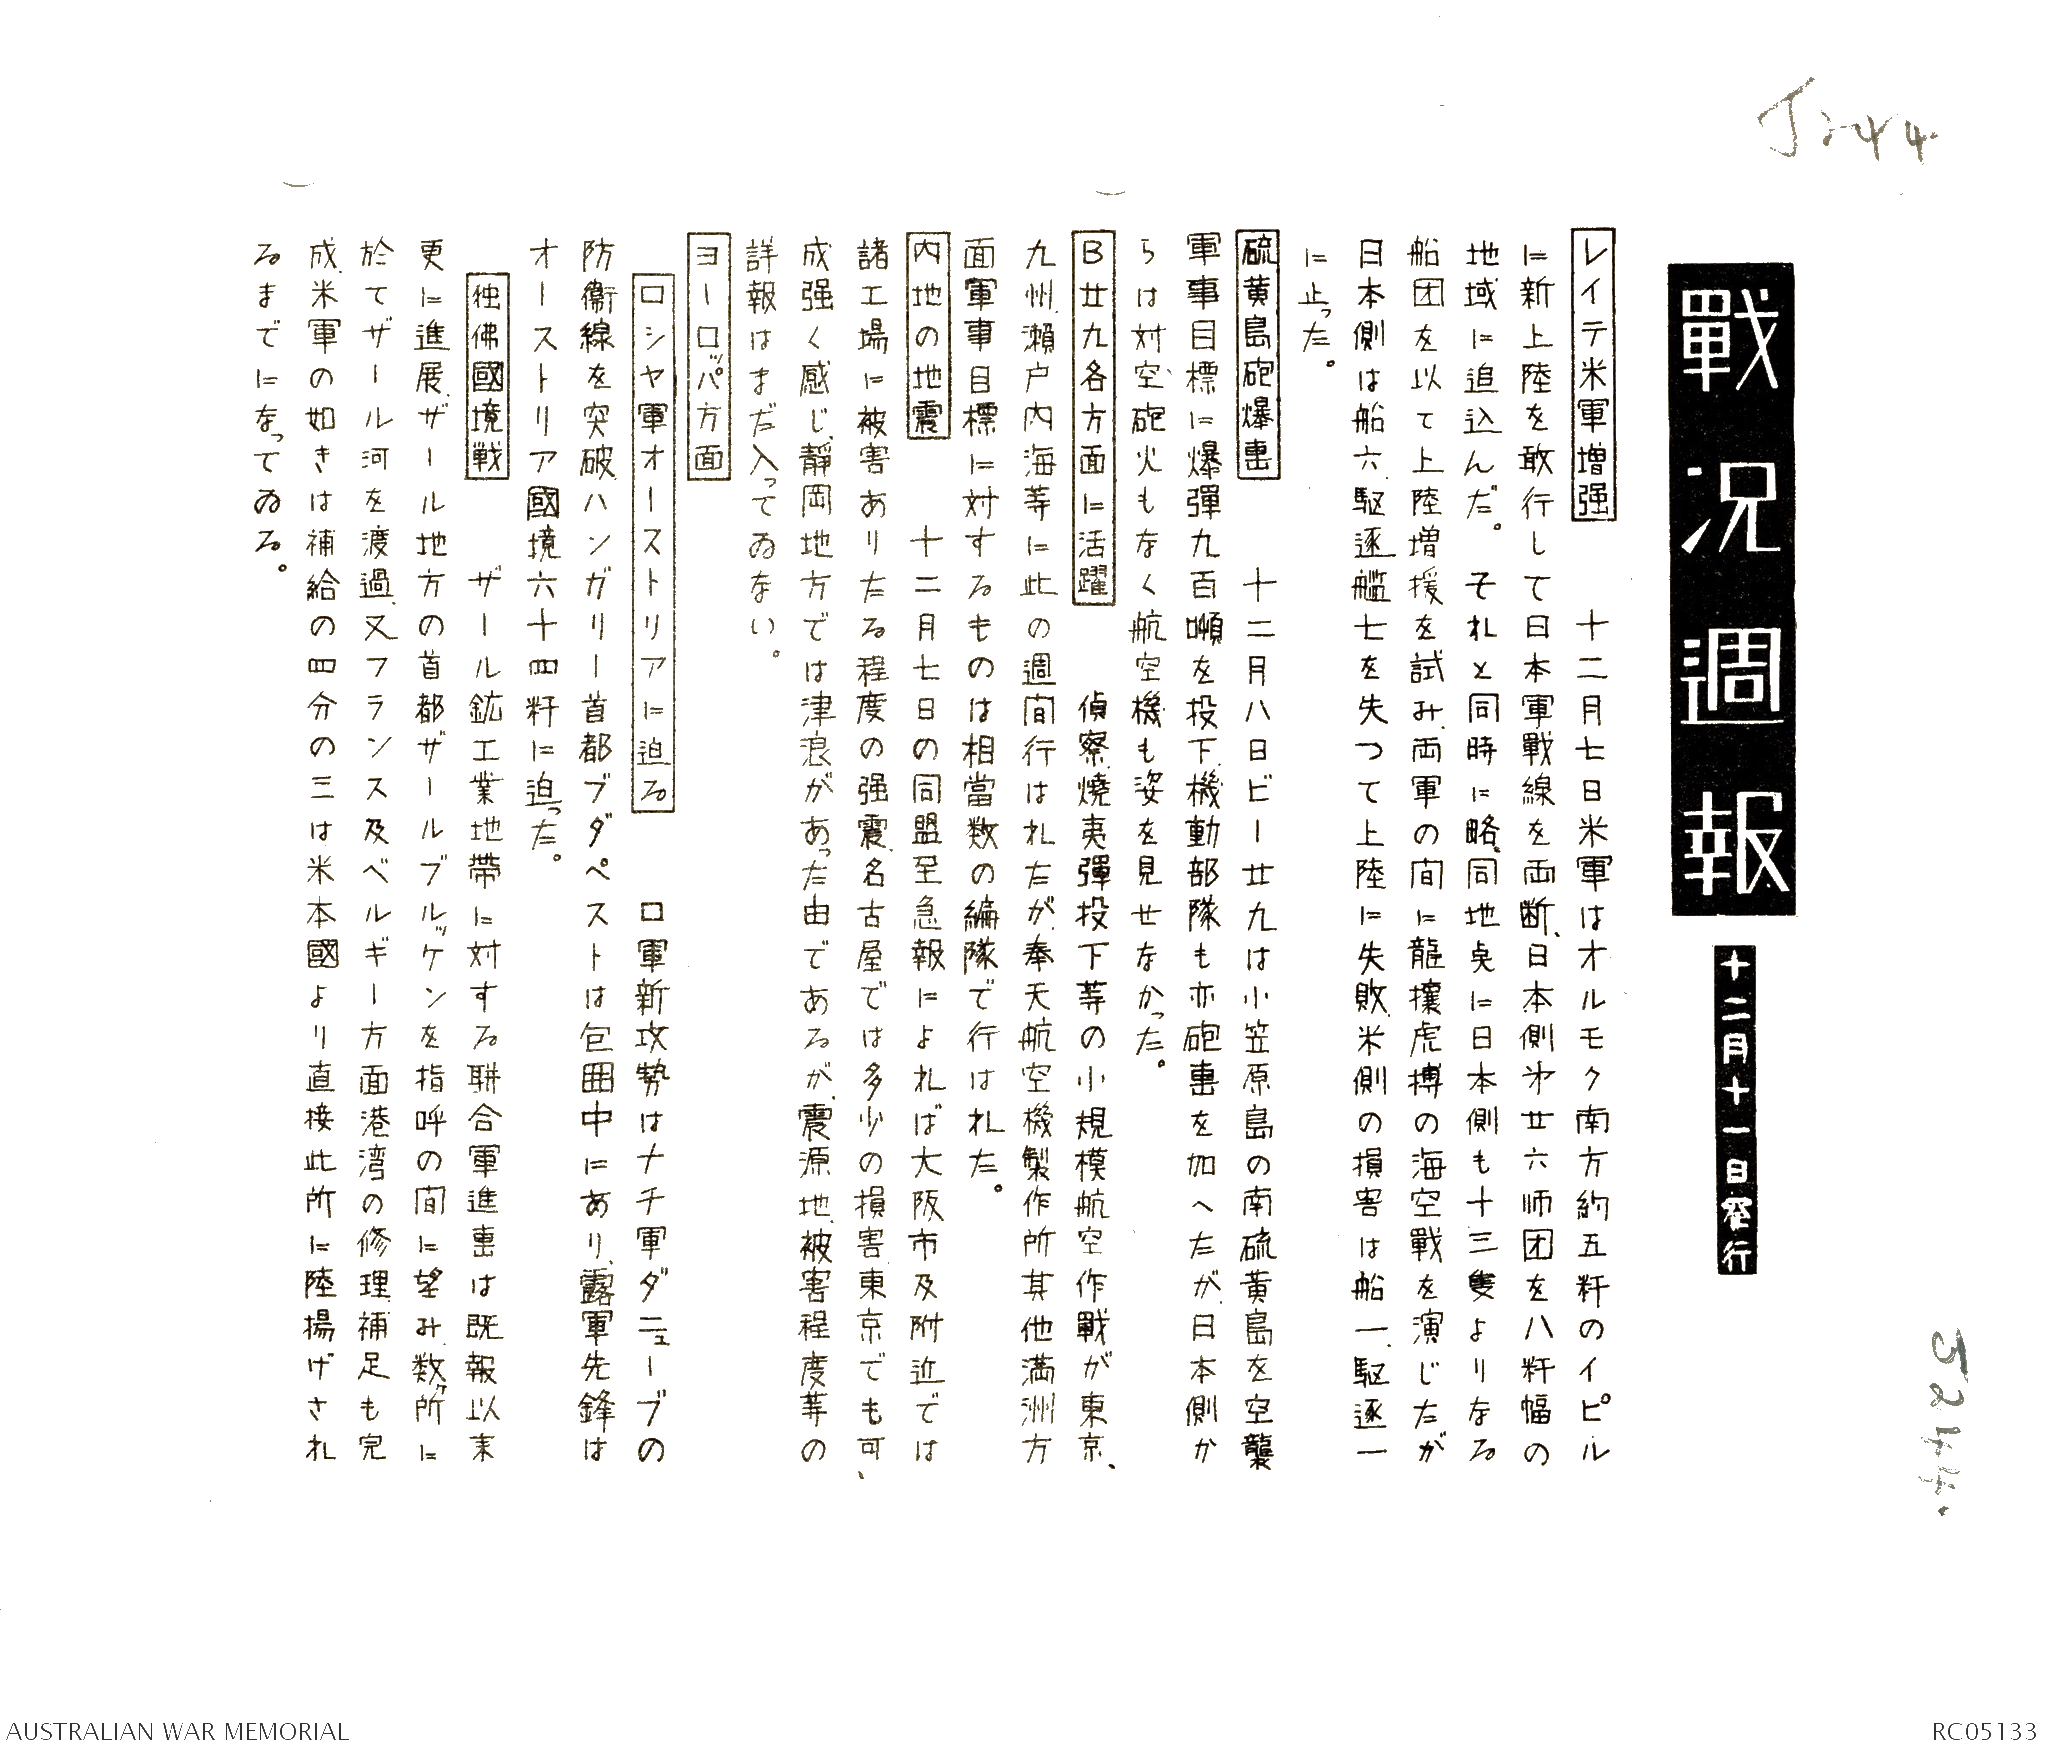 J244.
戰況週報
十二月十一日発行
レイテ米軍増强　十二月七日米軍はオルモク南方約五粁のイピル
に新上陸を敢行して日本軍戰線を両断、日本側㐧廿六师団を八粁幅の
地域に追込んだ。それと同時に略、同地奌に日本側も十三隻よりなる
船団を以て上陸増援を試み、両軍の间に龍攘虎搏の海空戰を演じたが
日本側は船六、駆逐艦七を失つて上陸に失敗、米側の損害は船一、駆逐一
に止った。
硫黄島砲爆擊　十二月八日ビー廿九は小笠原島の南硫黄島を空襲
軍事目標に爆彈九百噸を投下、機動部隊も亦砲擊を加へたが、日本側か
らは対空砲火もなく航空機も姿を見せなかった。
B廿九各方面に活躍　偵察、燒夷彈投下等の小規模航空作戰が東京、
九州、瀨户内海等に此の週间行はれたが、奉天航空機製作所其他満洲方
面軍事目標に対するものは相當数の編隊で行はれた。
内地の地震　十二月七日の同盟至急報によれば大阪市及附近では
諸工場に被害ありたる程度の强震、名古屋では多少の損害、東京でも可、
成强く感じ、静岡地方では津浪があった由であるが、震源地、被害程度等の
詳報はまだ入ってゐない。
ヨーロッパ方面
ロシヤ軍オーストリアに迫る　ロ軍新攻势はナチ軍ダニューブの
防衞線を突破、ハンガリー首都ブダペストは包囲中にあり、露軍先鋒は
オーストリア國境六十四粁に迫った。
独佛國境戦　ザール鉱工業地帯に対する聯合軍進擊は既報以来
更に進展、ザール地方の首都ザールブルッケンを指呼の间に望み、数ヶ所に
於てザール河を渡過、又フランス及ベルギー方面港湾の修理、補足も完
成、米軍の如きは補給の四分の三は米本國より直接此所に陸揚げされ
るまでになってゐる。
5244.
AUSTRALIAN WAR MEMORIAL
RC05133